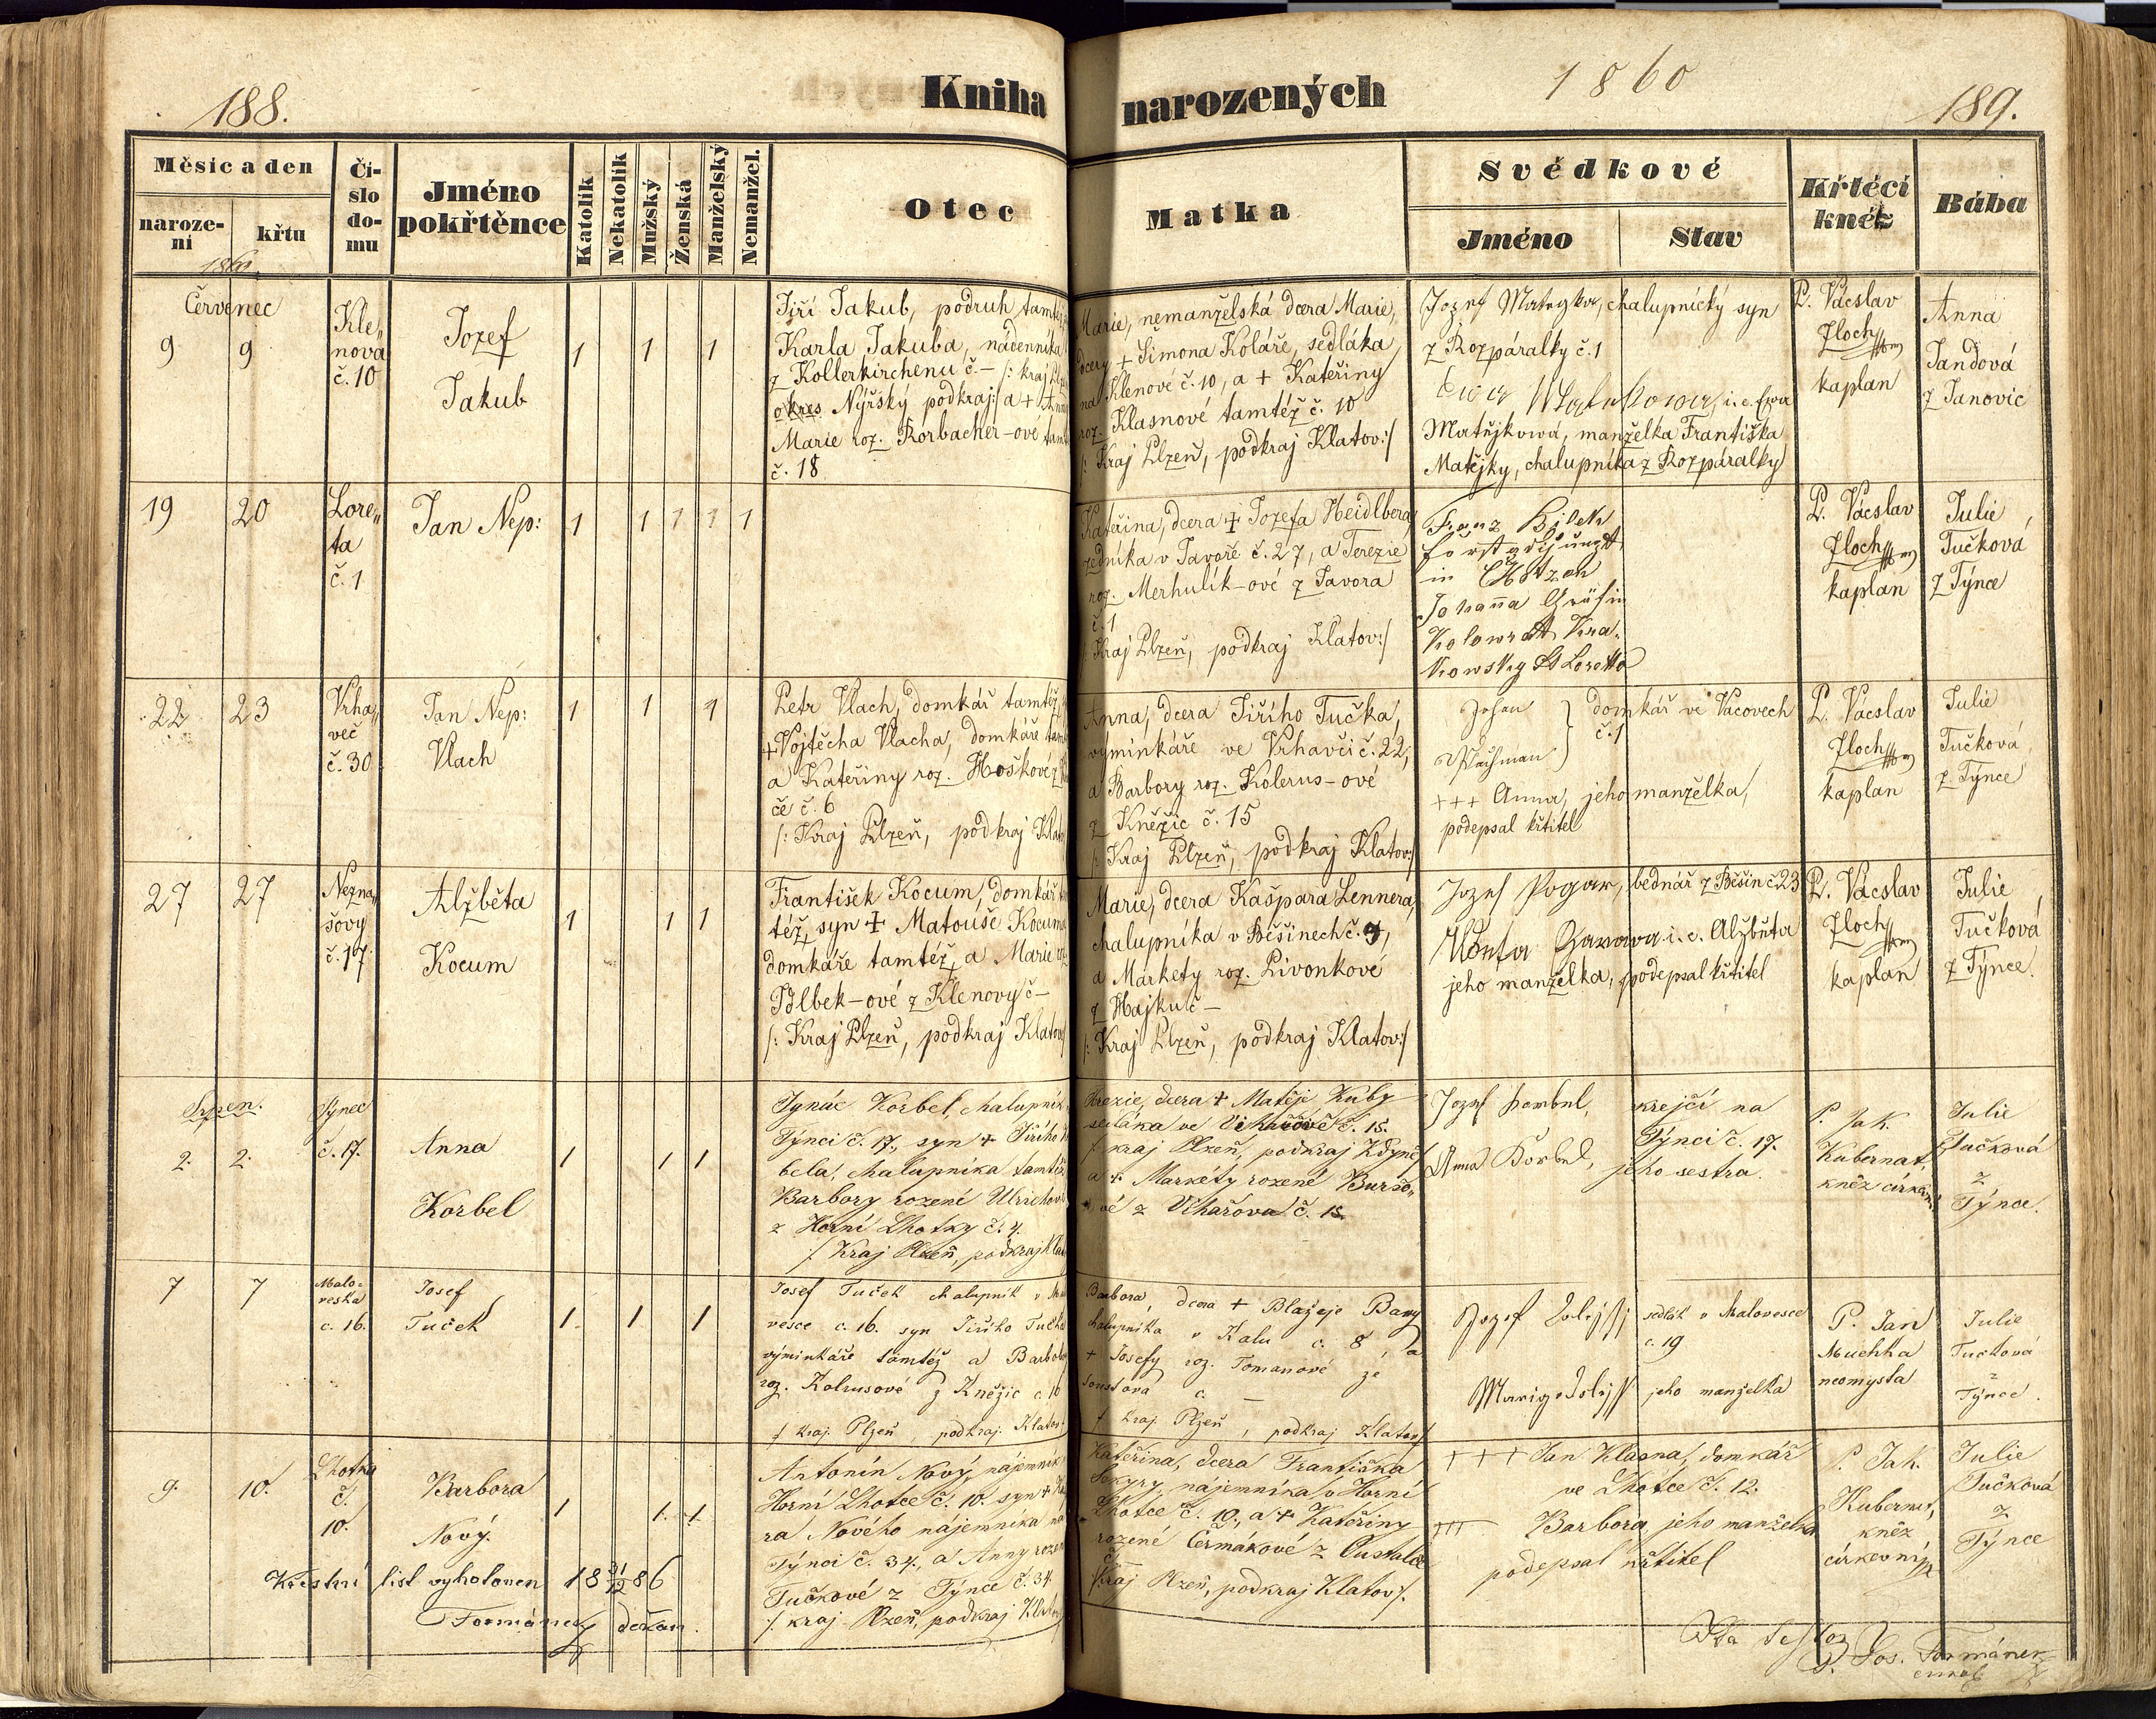 188.
Kniha narozených
1860
189.
Měsíc a den
narození
křtu
Číslo domu
Jméno pokřtěnce
Katolík
Nekatolík
Mužský
Ženská
Manželský
Nemanžel.
Otec
Matka
Svědkové
Jméno
Stav
Křtěcí kněz
Bába
Červenec
9
9
Kle„
nová
č. 10
Jozef
Jakub
1
1
1
Jiří Jakub, podruh
Karla Jakuba, nádenníka
z Kollerkirchenu č. – /: kraj
okres Nýřský podkraj:/ a +
Marie roz. Rorbacher-ove
č. 18
Marie, nemanželská dcera Marie,
dcery + Šimona Koláře, sedláka
na Klenové č. 10, a + Kateřiny
roz. Klasnové tamtéž č. 10
/: Kraj Plzeň, podkraj Klatov:/
Jozef Mategka, chalupnický syn
z Rozpáralky č. 1
i. e. Ewa
Matějkowá, manželka Františka
Matějky, chalupníka z Rozpáralky
P. Vácslav
Zloch
kaplan
Anna
Jandová
z Janovic
19
20
Lore„
ta
č. 1
Jan Nep:
1
1
1
1
1
Kateřina, dcera + Jozefa Heidlberg
zedníka v Javoře č. 27, a Terezie
roz. Merhulík-ové z Javora
č. 1
/: Kraj Plzeň, podkraj Klatov:/
Franz Bilek
in
Johanna Gräfin
Kolowrat Kra„
kowsky Loretto
P. Vácslav
Zloch
kaplan
Julie
Tučková
z Týnce
22
23
Vrha„
več
č. 30
Jan Nep:
Vlach
1
1
1
Petr Vlach, domkář tamtéž,
+ Vojtěcha Vlacha, domkáře
a Kateřiny roz. Hoškové z
če č. 6
/: Kraj Plzeň, podkraj
Anna, dcera Jiřího Tučka,
výminkáře ve Vrhavči č. 22,
a Barbory roz. Kolerus-ové
z Kněžic č. 15
/: Kraj Plzeň, podkraj Klatov:/
Johan
domkář ve Vacovech
č. 1
+++ Anna, jeho manželka,
podepsal křtitel
P. Vácslav
Zloch
kaplan
Julie
Tučková
z Týnce
27
27
Nezna„
šovy
č. 17
Alžběta
Kocum
1
1
1
František Kocum, domkář
též, syn + Matouše Kocuma
domkáře tamtéž, a Marie
z Klenovy č –
/: Kraj Plzeň, podkraj Klatov
Marie, dcera Kašpara Lennera,
chalupníka v Běšinech č. 9,
a Markety roz. Pivonkové
z Hajku č –
/: Kraj Plzeň, podkraj Klatov:/
Jozef Pogar, bednář z Běšin č 23
i. e. Alžběta
jeho manželka, podepsal křtitel
P. Vácslav
Zloch
kaplan
Julie
Tučková
z Týnce.
Srpen.
Týnec
2.
2.
č. 17.
Anna
Korbel
1
1
1
Ignác Korbel, chalupník
Týnci č. 17., syn + Jiřího
bela, chalupníka tamtéž
Barbory rozené Ulrichov
z Horní Lhotky č. 4.
/: Kraj Plzeň, podkraj
dcera + Matěje Kuby
sedláka ve č. 15.
/: kraj Plzeň, podkraj Kdyně:/
a + Markéty rozené
ové z č. 15.
Jozef Korbel, krejčí na
Týnci č. 17.
Anna Korbel, jeho sestra.
P. Jak.
Kubernat,
kněz církevní
Julie
Tučková
z
Týnce.
7
7
Malo=
veska
č. 16.
Josef
Tuček
1
1
1
Josef Tuček chalupník v
vesce č. 16. syn Jiřího Tučka
výminkáře tamtéž a Barbory
roz. Kolrusové z Kněžic č. 16
/: kraj Plzeň, podkraj Klatov:
Barbora, dcera + Blažeje
chalupníka v Kalu č. 8, a
+ Josefy roz. Tomanové ze
č. –
/: kraj Plzeň, podkraj Klatov:/
Jozef sedlák v Malovesce
č. 19
jeho manželka
P. Jan
Muchka
neomysta
Julie
Tučková
z
Týnce.
9.
10.
Lhotka
č.
10.
Barbora
Nový.
1
1.
1
Antonín Nový, nájemník
Horní Lhotce č. 10. syn +
ra Nového nájemníka na
Týnci č. 34., a Anny rozen
Tučkové z Týnce č. 34
/: kraj Plzeň, podkraj
Kateřina, dcera Františka
Sekyry, nájemníka v Horní
Lhotce č. 10., a + Kateřiny
rozené Čermákové z
č. –
/: Kraj Plzeň, podkraj Klatov:/.
+++ Jan Klasna, domkář
ve Lhotce č. 12.
+++ Barbora, jeho manželka
podepsal křtitel
P. Jak.
Kubernat,
kněz
církevní
Julie
Tučková
z
Týnce
Křestní list vyhotoven 18 31/12 86
Formánek děkan.
Jos. Formánek